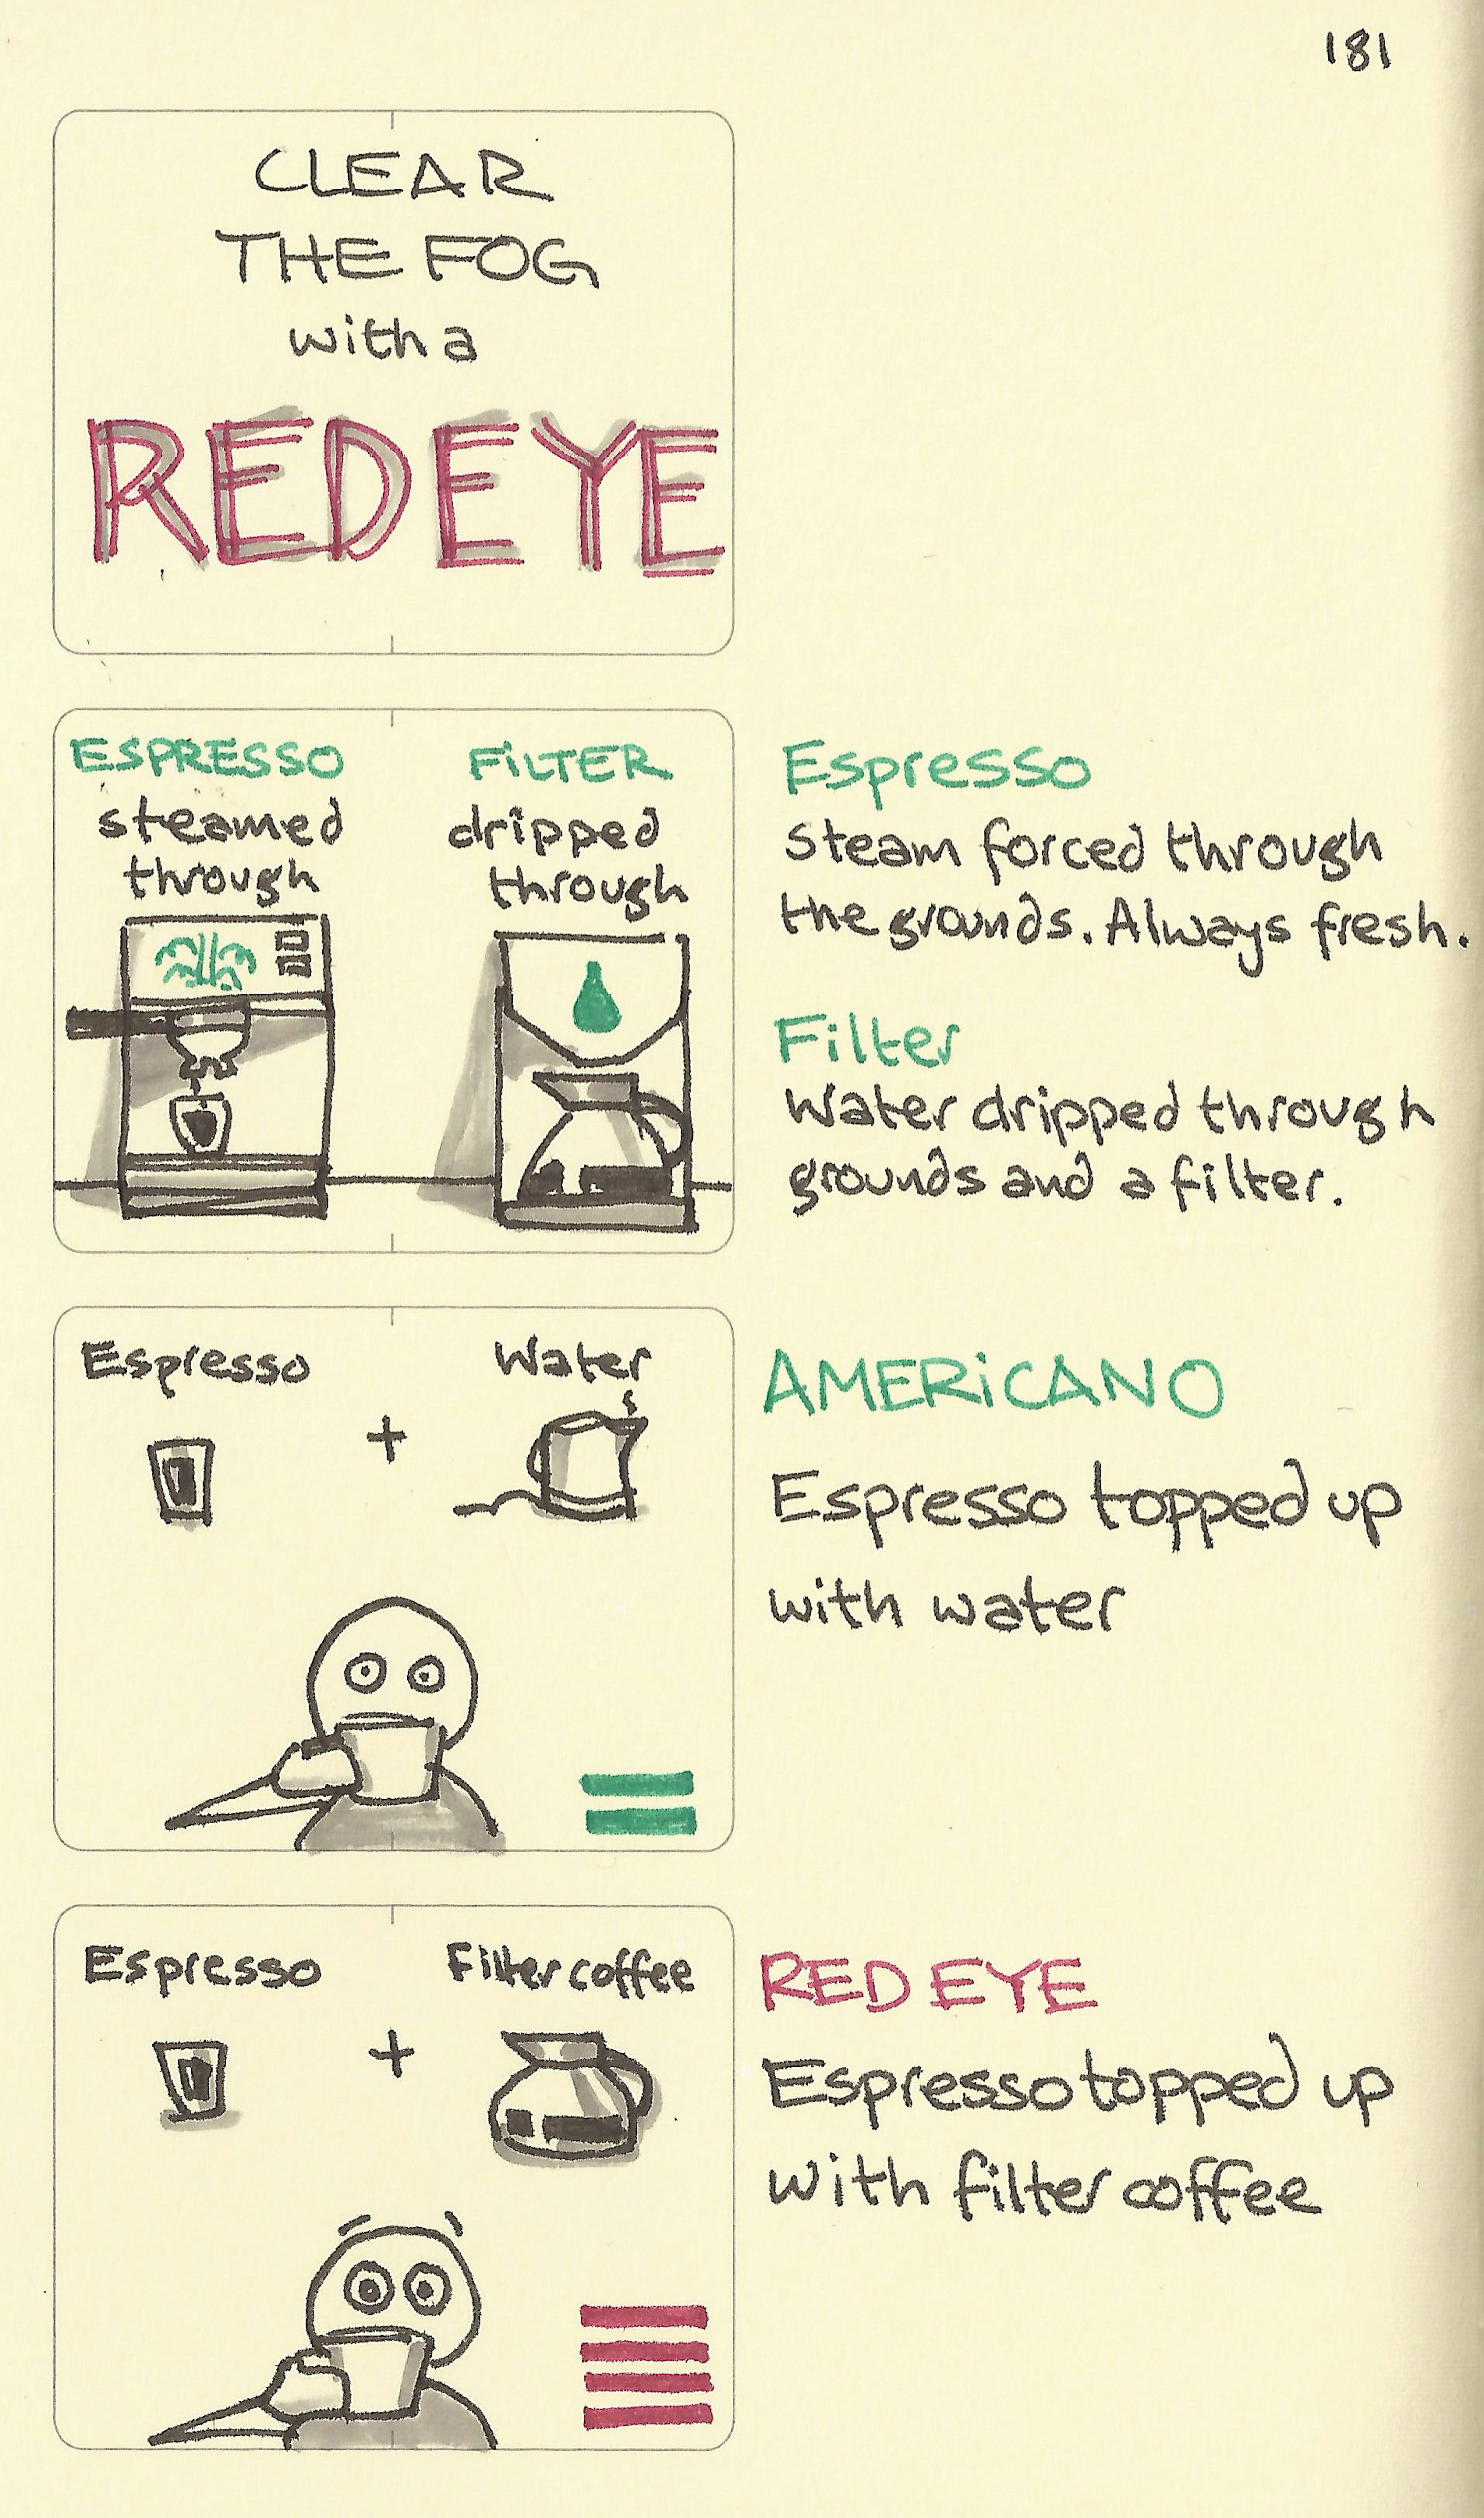 181
CLEAR
THE FOG
with a
RED EYE
ESPRESSO
steamed
through
FILTER
dripped
through
Espresso
Steam forced through
the grounds. Always fresh.
Filter
Water dripped through
grounds and a filter.
Espresso
+
Water
AMERICANO
Espresso topped up
with water
Espresso
+
Filter coffee
RED EYE
Espresso topped up
with filter coffee